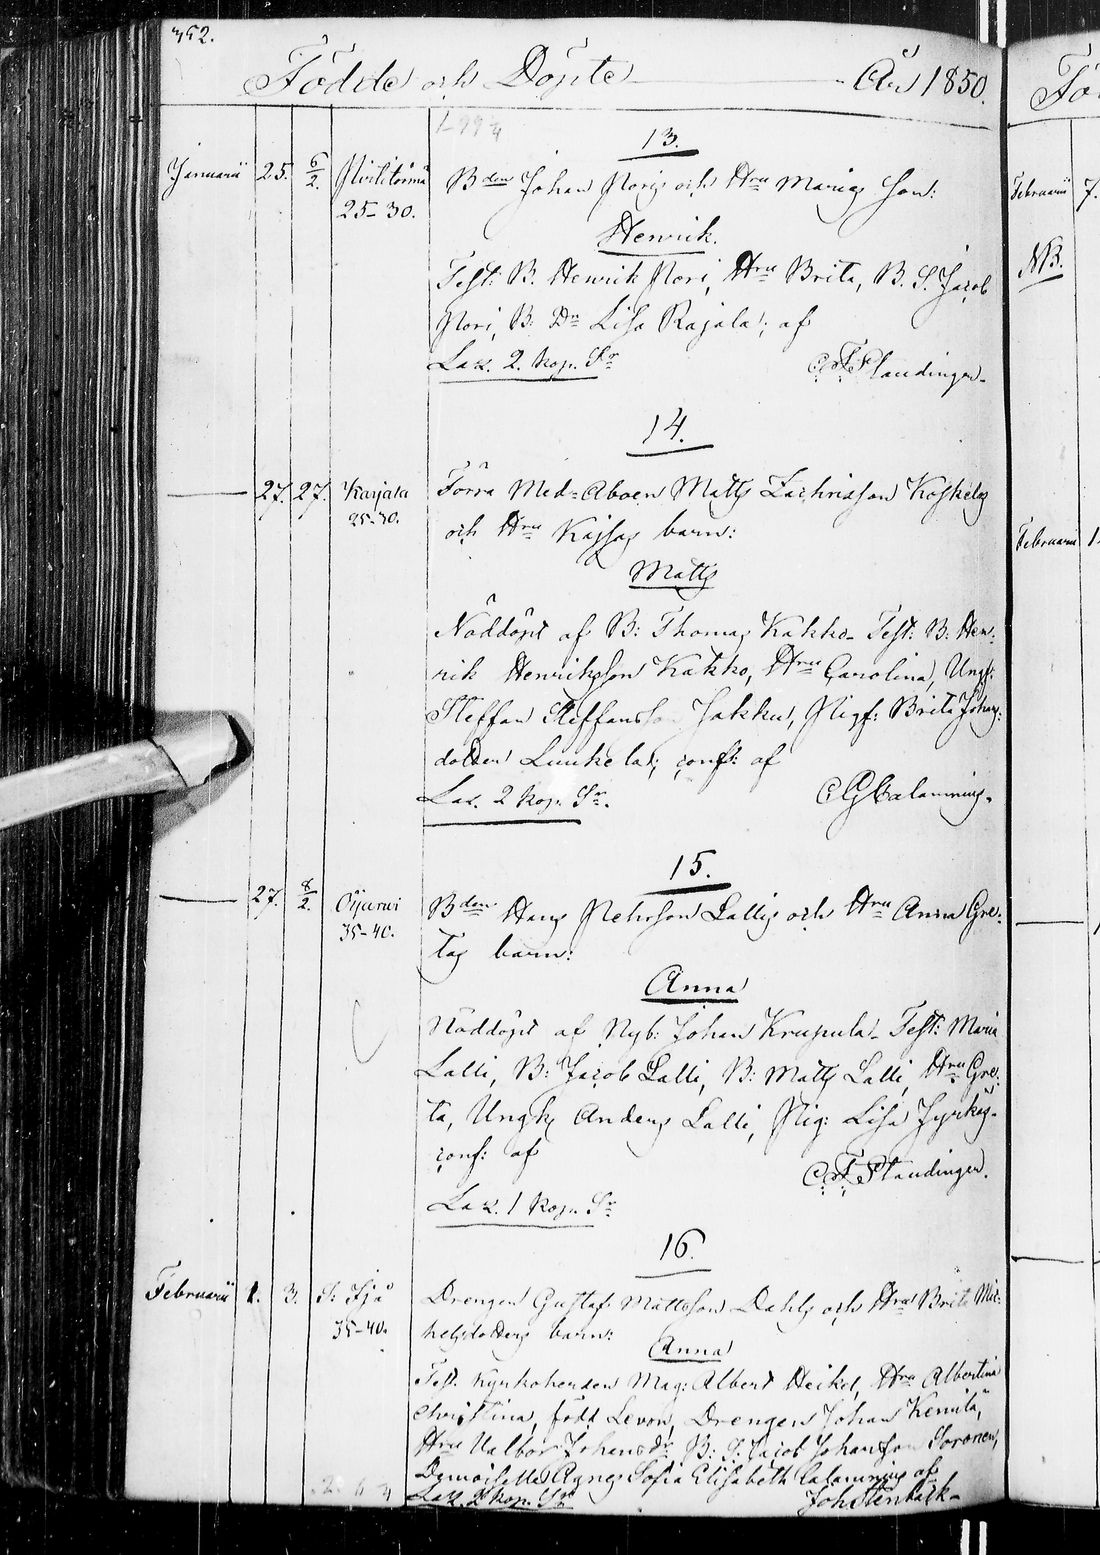 352.
Födde och Döpte År 1850.
13.
Januarii 25. 6/2. 25-30. B:den Johan Noris och H:ru Marias Son:
Henrik.
Test: B. Henrik Nori, H:ru Brita, B. S. Jacob
Nori, B: D:r Lisa Rajala; af
Lax. 2. Kop. S:r
14.
27. 27. Karjala 25-30. Förra Med-Åboen Matts Zachrisson Koskelas
och H:ru Kajsas barn:
Matts
Nöddöpt af B: Thomas Kakko. Test: B: Hen-
rik Henriksson Kakko, H:ru Carolina, Ungk:
Steffan Steffansson Jakku, Pigf: Brita Johans-
dotter Luukela; conf: af
Lax. 2 Kop. S:r. Calamnius.
15.
27. 8/2. Oijarvi 35-40. B:den Hans Pehrsson Lallis och H:ru Anna Gre-
tas barn:
Anna
Nöddöpt af Nyb: Johan Krupula. Test: Maria
Lalli, B: Jacob Lalli, B: Matts Lalli, H:ru Gre-
ta, Ungk Anders Lalli, Pig: Lisa
conf: af
Lax. 1 Kop. S:r
16.
Februarii 1. 3. 35-40. Drengen Gustaf Mattsson Dahls och H:ru Brita Mic-
helsdotters barn:
Anna
Test. Kyrkoherden Mag: Albert Heikel, H:ru Albertina
Christina, född Levon, Drengen Johan Kemilä,
H:ru Valbor Johansd:r B: S: Jacob Johansson Soronen,
Demoiselle Agnes Sofia Elisabeth Calamnius af
Lax. 2 Kop. S:r Joh Stenbäck
Februarii 7.
NB.
Februarii